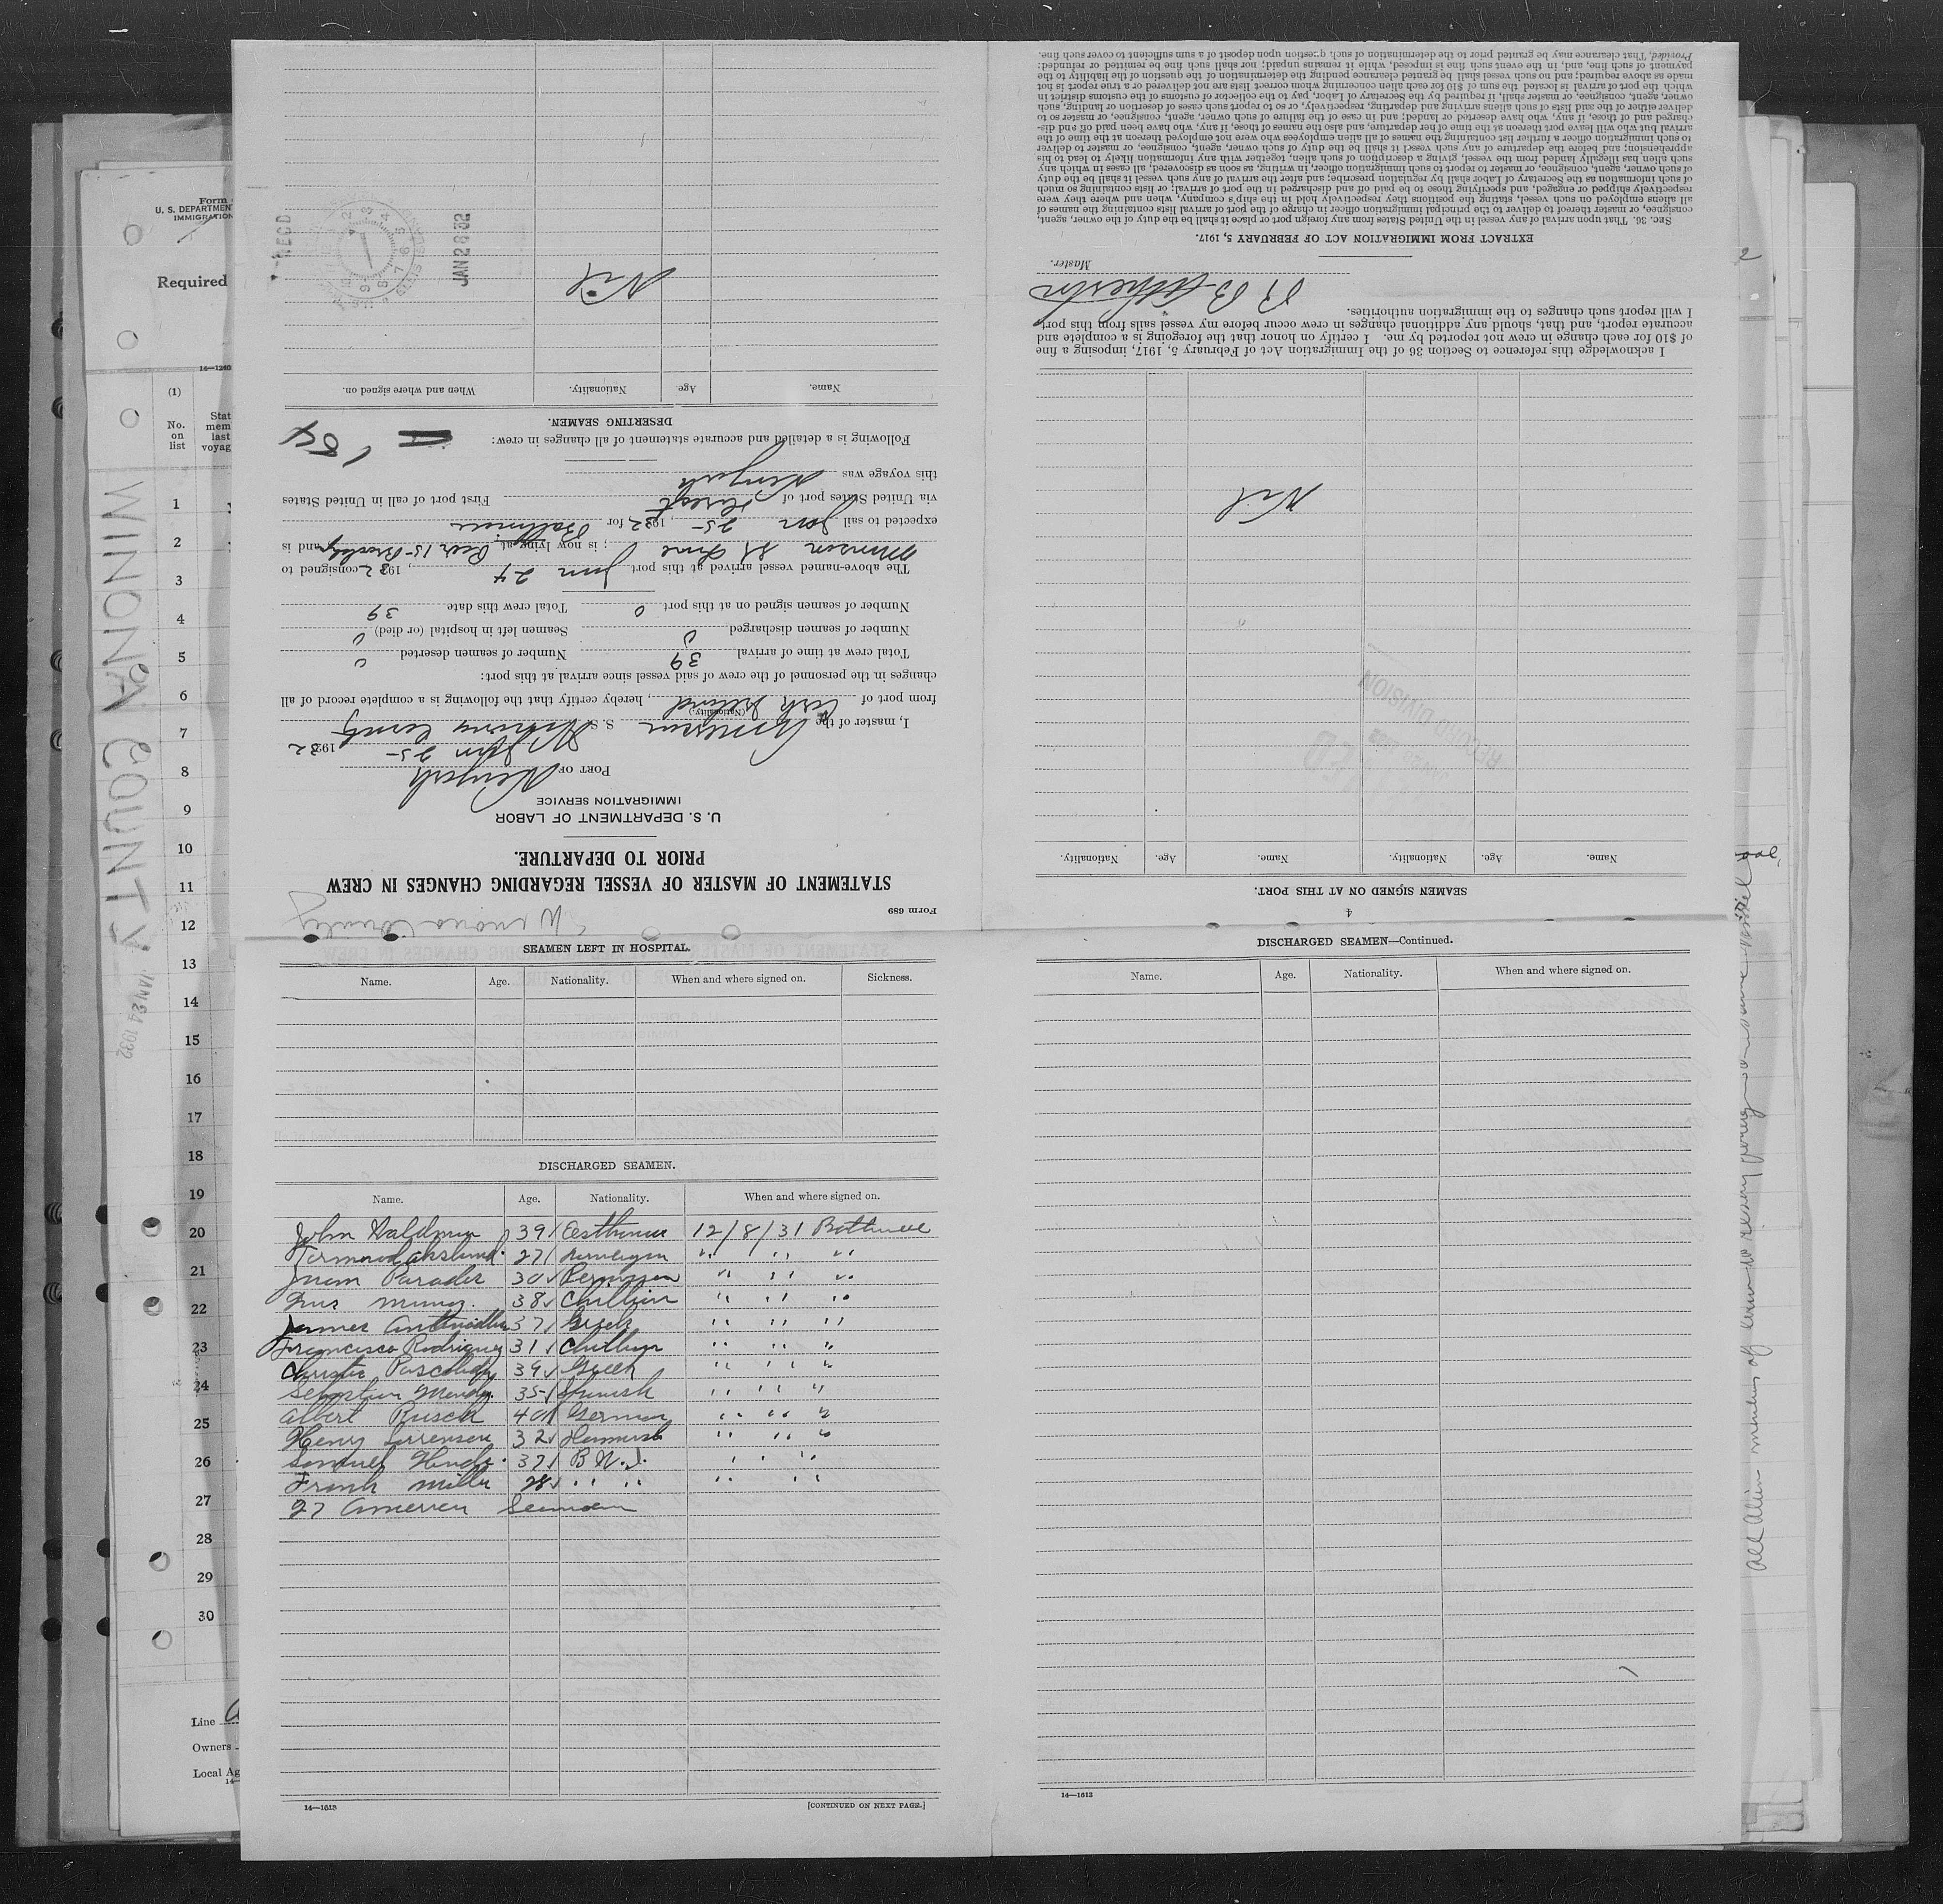 Form 689
Winona County
STATEMENT OF MASTER OF VESSEL REGARDING CHANGES IN CREW
PRIOR TO DEPARTURE.
U. S. DEPARTMENT OF LABOR
IMMIGRATION SERVICE
PORT OF Newyork
Jan 25 1932
I, master of the American S. S. Winona County
(Nationality.)
from port of Cork Ireland, hereby certify that the following is a complete record of all
changes in the personnel of the crew of said vessel since arrival at this port:
Total crew at time of arrival 39 Number of seamen deserted 0
Number of seamen discharged 0 Seamen left in hospital (or died) 0
Number of seamen signed on at this port 0 Total crew this date 39
The above-named vessel arrived at this port Jan 24, 1932 consigned to
Munson St Line; is now lying at Pier 15 Brooklyn and is
expected to sail Jan 25, 1932 for Baltimore
via United States port of Direct First port of call in United States
this voyage was Newyork
Following is a detailed and accurate statement of all changes in crew:
DESERTING SEAMEN.
Name. Age. Nationality. When and where signed on.
Nil
JAN 28 32
REC'D
SEAMEN LEFT IN HOSPITAL.
Name. Age. Nationality. When and where signed on. Sickness.
DISCHARGED SEAMEN.
Name. Age. Nationality. When and where signed on.
John Waldman 39 12/8/31
27 " " "
Juan Parades 30 " " "
Luis Munoz. 38 Chillian " " "
James 37 Greek " " "
Francisco Rodriguez 31 Chillian " " "
Christo 39 Greek " " "
Sebastian Mendez 35 Spanish " " "
Albert Busch 40 German " " "
Henry Sorrensen 32 " " "
Samuel Hinds. 37 B W. I. " " "
Frank Miller 28 " " " "
27 American Seamen
14—1613
[CONTINUED ON NEXT PAGE.]
DISCHARGED SEAMEN—Continued.
Name. Age. Nationality. When and where signed on.
14—1612
4
SEAMEN SIGNED ON AT THIS PORT.
Name. Age. Nationality. Name. Age. Nationality.
RECORD DIVISION
Nil
I acknowledge this reference to Section 36 of the Immigration Act of February 5, 1917, imposing a fine
of $10 for each change in crew not reported by me. I certify on honor that the foregoing is a complete and
accurate report, and that, should any additional changes in crew occur before my vessel sails from this port
I will report such changes to the immigration authorities.
R B Atherton
Master.
EXTRACT FROM IMMIGRATION ACT OF FEBRUARY 5, 1917.
SEC. 36. That upon arrival of any vessel in the United States from any foreign port or place it shall be the duty of the owner, agent,
consignee, or master thereof to deliver to the principal immigration officer in charge of the port of arrival lists containing the names of
all aliens employed on such vessel, stating the positions they respectively hold in the ship's company, when and where they were
respectively shipped or engaged, and specifying those to be paid off and discharged in the port of arrival; or lists containing so much
of such information as the Secretary of Labor shall by regulation prescribe; and after the arrival of any such vessel it shall be the duty
of such owner, agent, consignee, or master to report to such immigration officer, in writing, as soon as discovered, all cases in which any
such alien has illegally landed from the vessel, giving a description of such alien, together with any information likely to lead to his
apprehension; and before the departure of any such vessel it shall be the duty of such owner, agent, consignee, or master to deliver
to such immigration officer a further list containing the names of all alien employees who were not employed thereon at the time of the
arrival but who will leave port thereon at the time of her departure, and also the names of those, if any, who have been paid off and dis-
charged and of those, if any, who have deserted or landed; and in case of the failure of such owner, agent, consignee, or master so to
deliver either of the said lists of such aliens arriving and departing, respectively, or so to report such cases of desertion or landing, such
owner, agent, consignee, or master shall, if required by the Secretary of Labor, pay to the collector of customs of the customs district in
which the port of arrival is located the sum of $10 for each alien concerning whom correct lists are not delivered or a true report is not
made as above required; and no such vessel shall be granted clearance pending the determination of the question of the liability to the
payment of such fine, and, in the event such fine is imposed, while it remains unpaid; nor shall such fine be remitted or refunded:
Provided, That clearance may be granted prior to the determination of such question upon deposit of a sum sufficient to cover such fine.
Form
U. S. DEPARTMENT
IMMIGRATION
Required
14—1240
(1)
No.
on
list
Stat
mem
last
voyag
1
2
3
4
5
6
7
8
9
10
11
12
13
14
15
16
17
18
19
20
21
22
23
24
25
26
27
28
29
30
WINONA COUNTY
JAN 24 1932
Line
Owners
Local Ag
14—
2